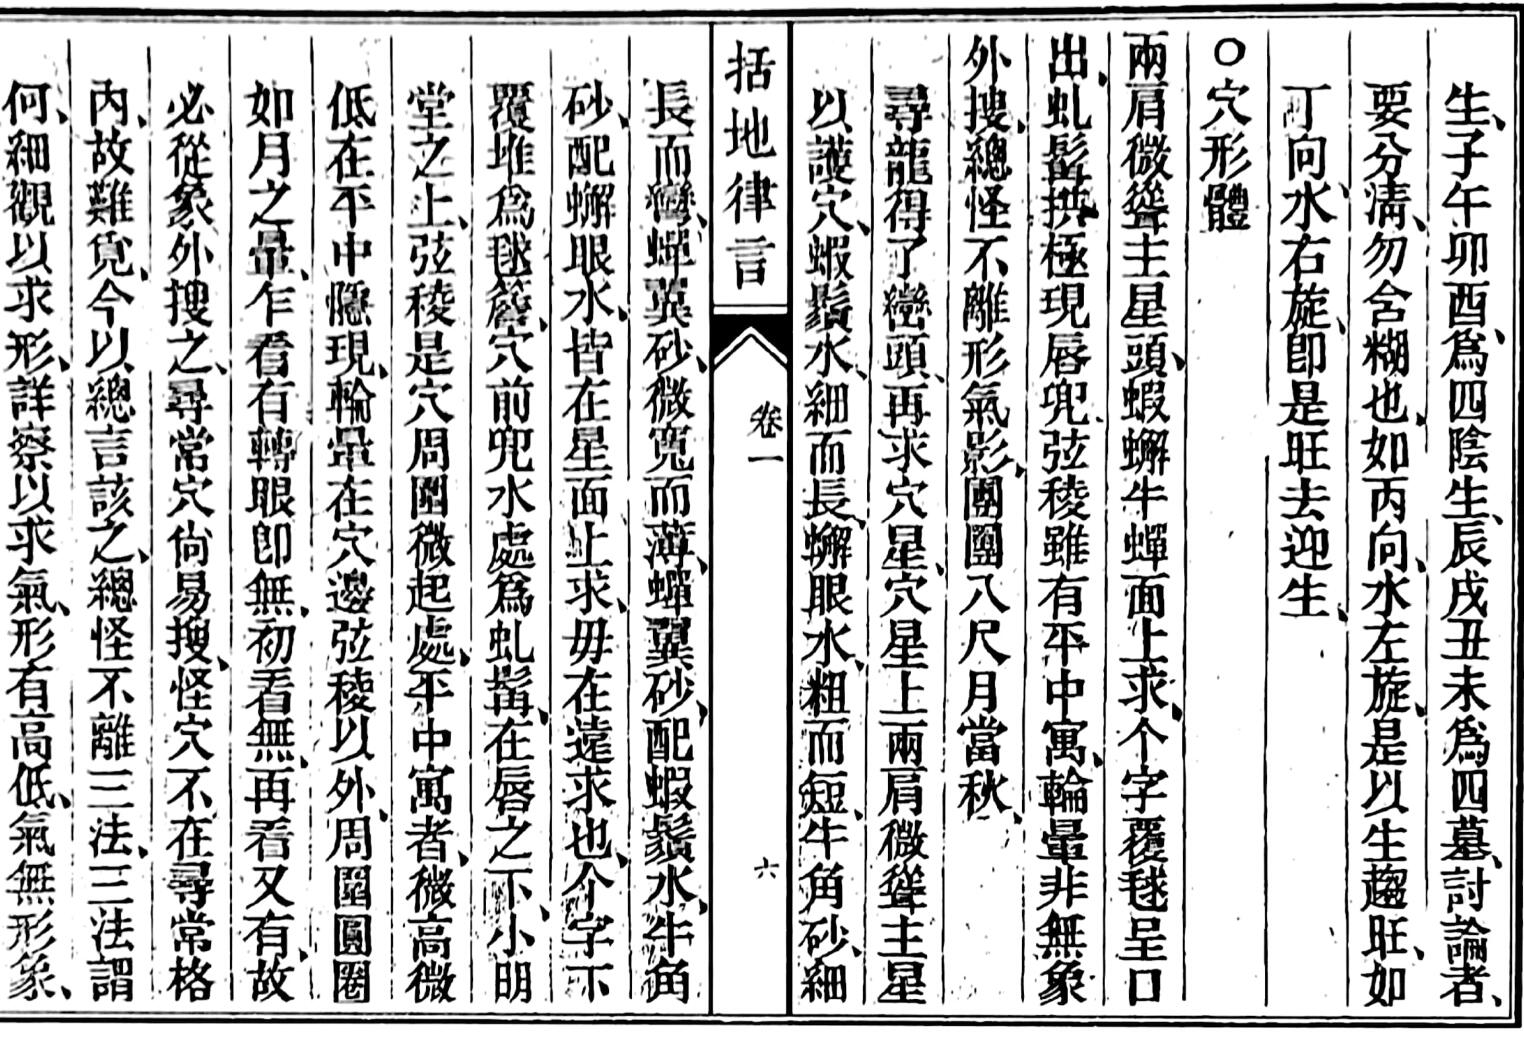 生、子午卯酉、爲四陰生、辰戌丑未爲四墓、討論者、
要分淸、勿含糊也、如丙向、水左旋、是以生趨旺、如
丁向、水右旋、卽是旺去迎生、
○穴形體
兩肩微聳主星頭、蝦蠏牛蟬面上求、个字覆毬呈口
出、虬髯拱極現唇兜、弦稜雖有平中寓、輪暈非無象
外搜、總怪不離形氣影、團團八尺月當秋、
尋龍得了巒頭、再求穴星、穴星上兩肩微聳主星
以護穴、蝦鬚水、細而長、蠏眼水、粗而短、牛角砂、細
括地律言
卷一
六
長而彎、蟬翼砂、微寬而薄、蟬翼砂、配蝦鬚水、牛角
砂、配蠏眼水、皆在星面上求、毋在遠求也、个字下
覆堆爲毬簷、穴前兜水處爲虬髯、在唇之下、小明
堂之上、弦稜是穴周圍微起處、平中寓者、微高微
低在平中隱現、輪暈在穴邊弦稜以外、周圍圓圈
如月之暈、乍看有轉眼卽無、初看無、再看又有、故
必從象外搜之、尋常穴尙易搜、怪穴不在尋常格
內、故難覓、今以總言該之、總怪不離三法、三法謂
何、細觀以求形、詳察以求氣、形有高低、氣無形象、